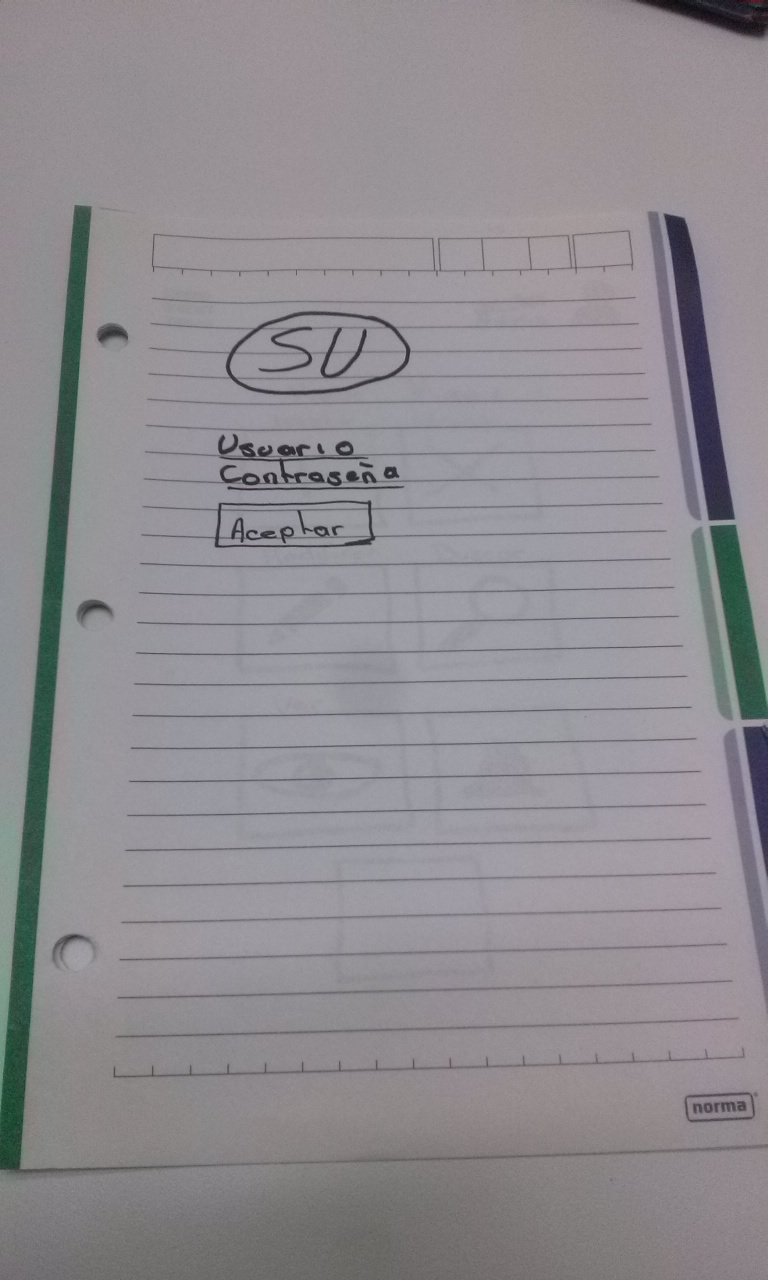 SU
Usuario
Contraseña
Aceptar
norma